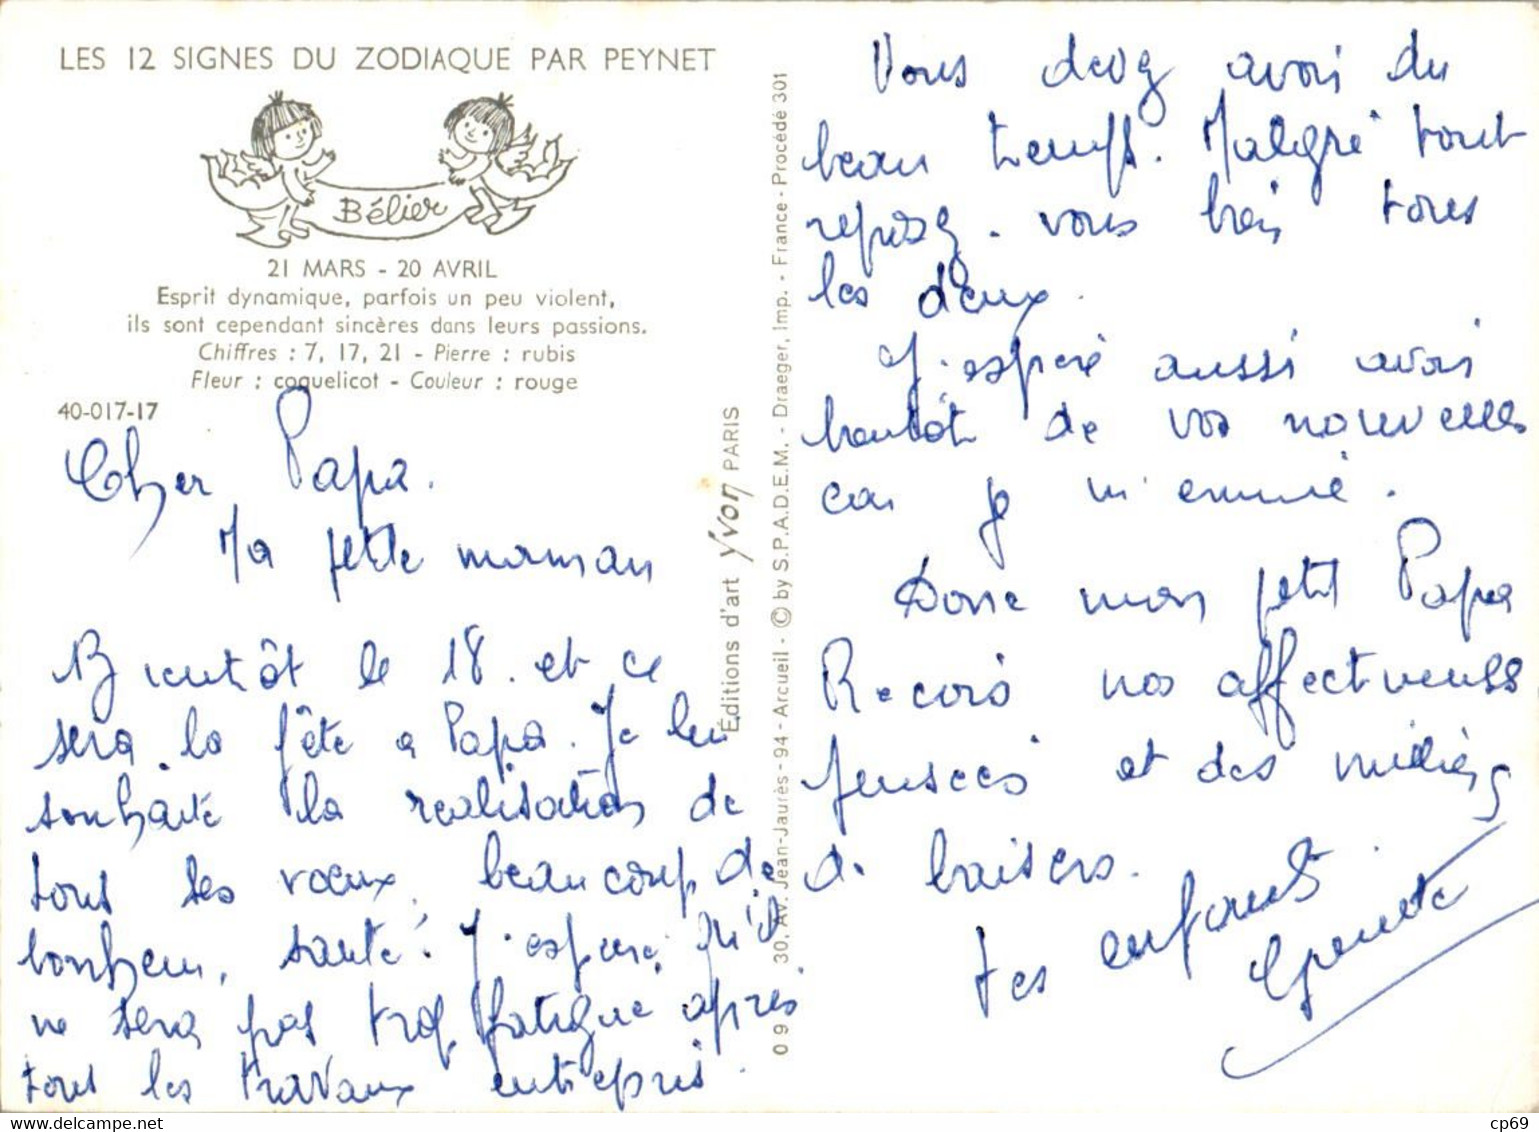 LES 12 SIGNES DU ZODIAQUE PAR PEYNET
Bélier
21 MARS - 20 AVRIL
Esprit dynamique, parfois un peu violent,
ils sont cependant sincères dans leurs passions.
Chiffres : 7, 17, 21 - Pierre : rubis
Fleur : coquelicot - Couleur : rouge
40-017-17
Cher Papa.
Ma petite maman
Bientôt le 18. et ce
sera la fête a Papa. Je lui
souhaite la realisation de
tous ses voeux, beaucoup de
bonheur, santé. J'espere qu'il
ne sera pas trop fatigue apres
tous les travaux entrepris.
Éditions d'art Yvon PARIS
0 9 30, Av. Jean-Jaurès - 94 - Arcueil - © by S.P.A.D.E.M. - Draeger, Imp. - France - Procédé 301
Vous devez avoir du
beau temps. Malgré tout
reposez-vous bien tous
les deux.
J'espere aussi avoir
bientôt de vos nouvelles
car je m'ennuie.
Donc mon petit Papa
Recois nos affectueuses
pensees et des milliers
de baisers.
tes enfants
www.delcampe.net
cp69